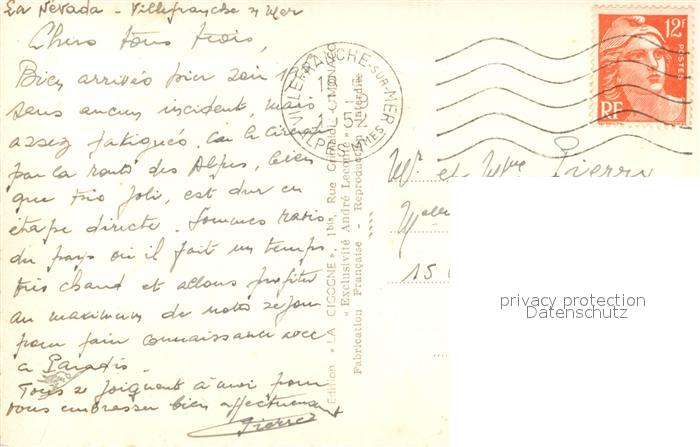 La Névada - Villefranche s/ Mer
Chers tous trois,
Bien arrivés hier soir 19h
sans aucun incident, mais
assez fatigués, car le circuit
par la route des Alpes, bien
que très joli, est dur en
étape directe. Sommes ravis
du pays où il fait un temps
très chaud et allons profiter
au maximum de notre séjour
pour faire connaissance avec
ce Paradis.
Tous se joignent à moi pour
vous embrasser bien affectueusement
Pierre
VILLEFRANCHE-SUR-MER
ALPES MMES
Edition « LA CIGOGNE », 1bis, Rue
« Exclusivité André Leconte »
Fabrication Française - Reproduction Interdite
12F
POSTES
RF
Mr et Mme Pierre
15
privacy protection
Datenschutz